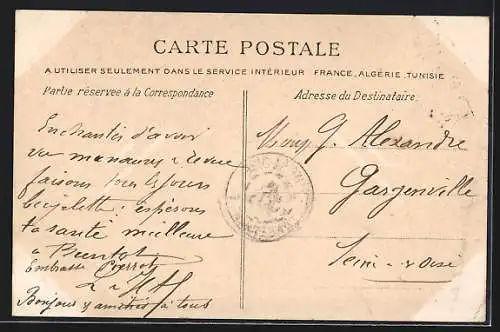 CARTE POSTALE
A UTILISER SEULEMENT DANS LE SERVICE INTÉRIEUR FRANCE, ALGÉRIE, TUNISIE
Partie réservée à la Correspondance
Adresse du Destinataire.
Enchantés d'avoir
vu manœuvres Revue
faisons tous les jours
bicyclette: espérons
ta santé meilleure
à Bientôt
Embrasse Pierrot
Bonjour amitiés à tous
Mons G. Alexandre
Gargenville
Seine & Oise